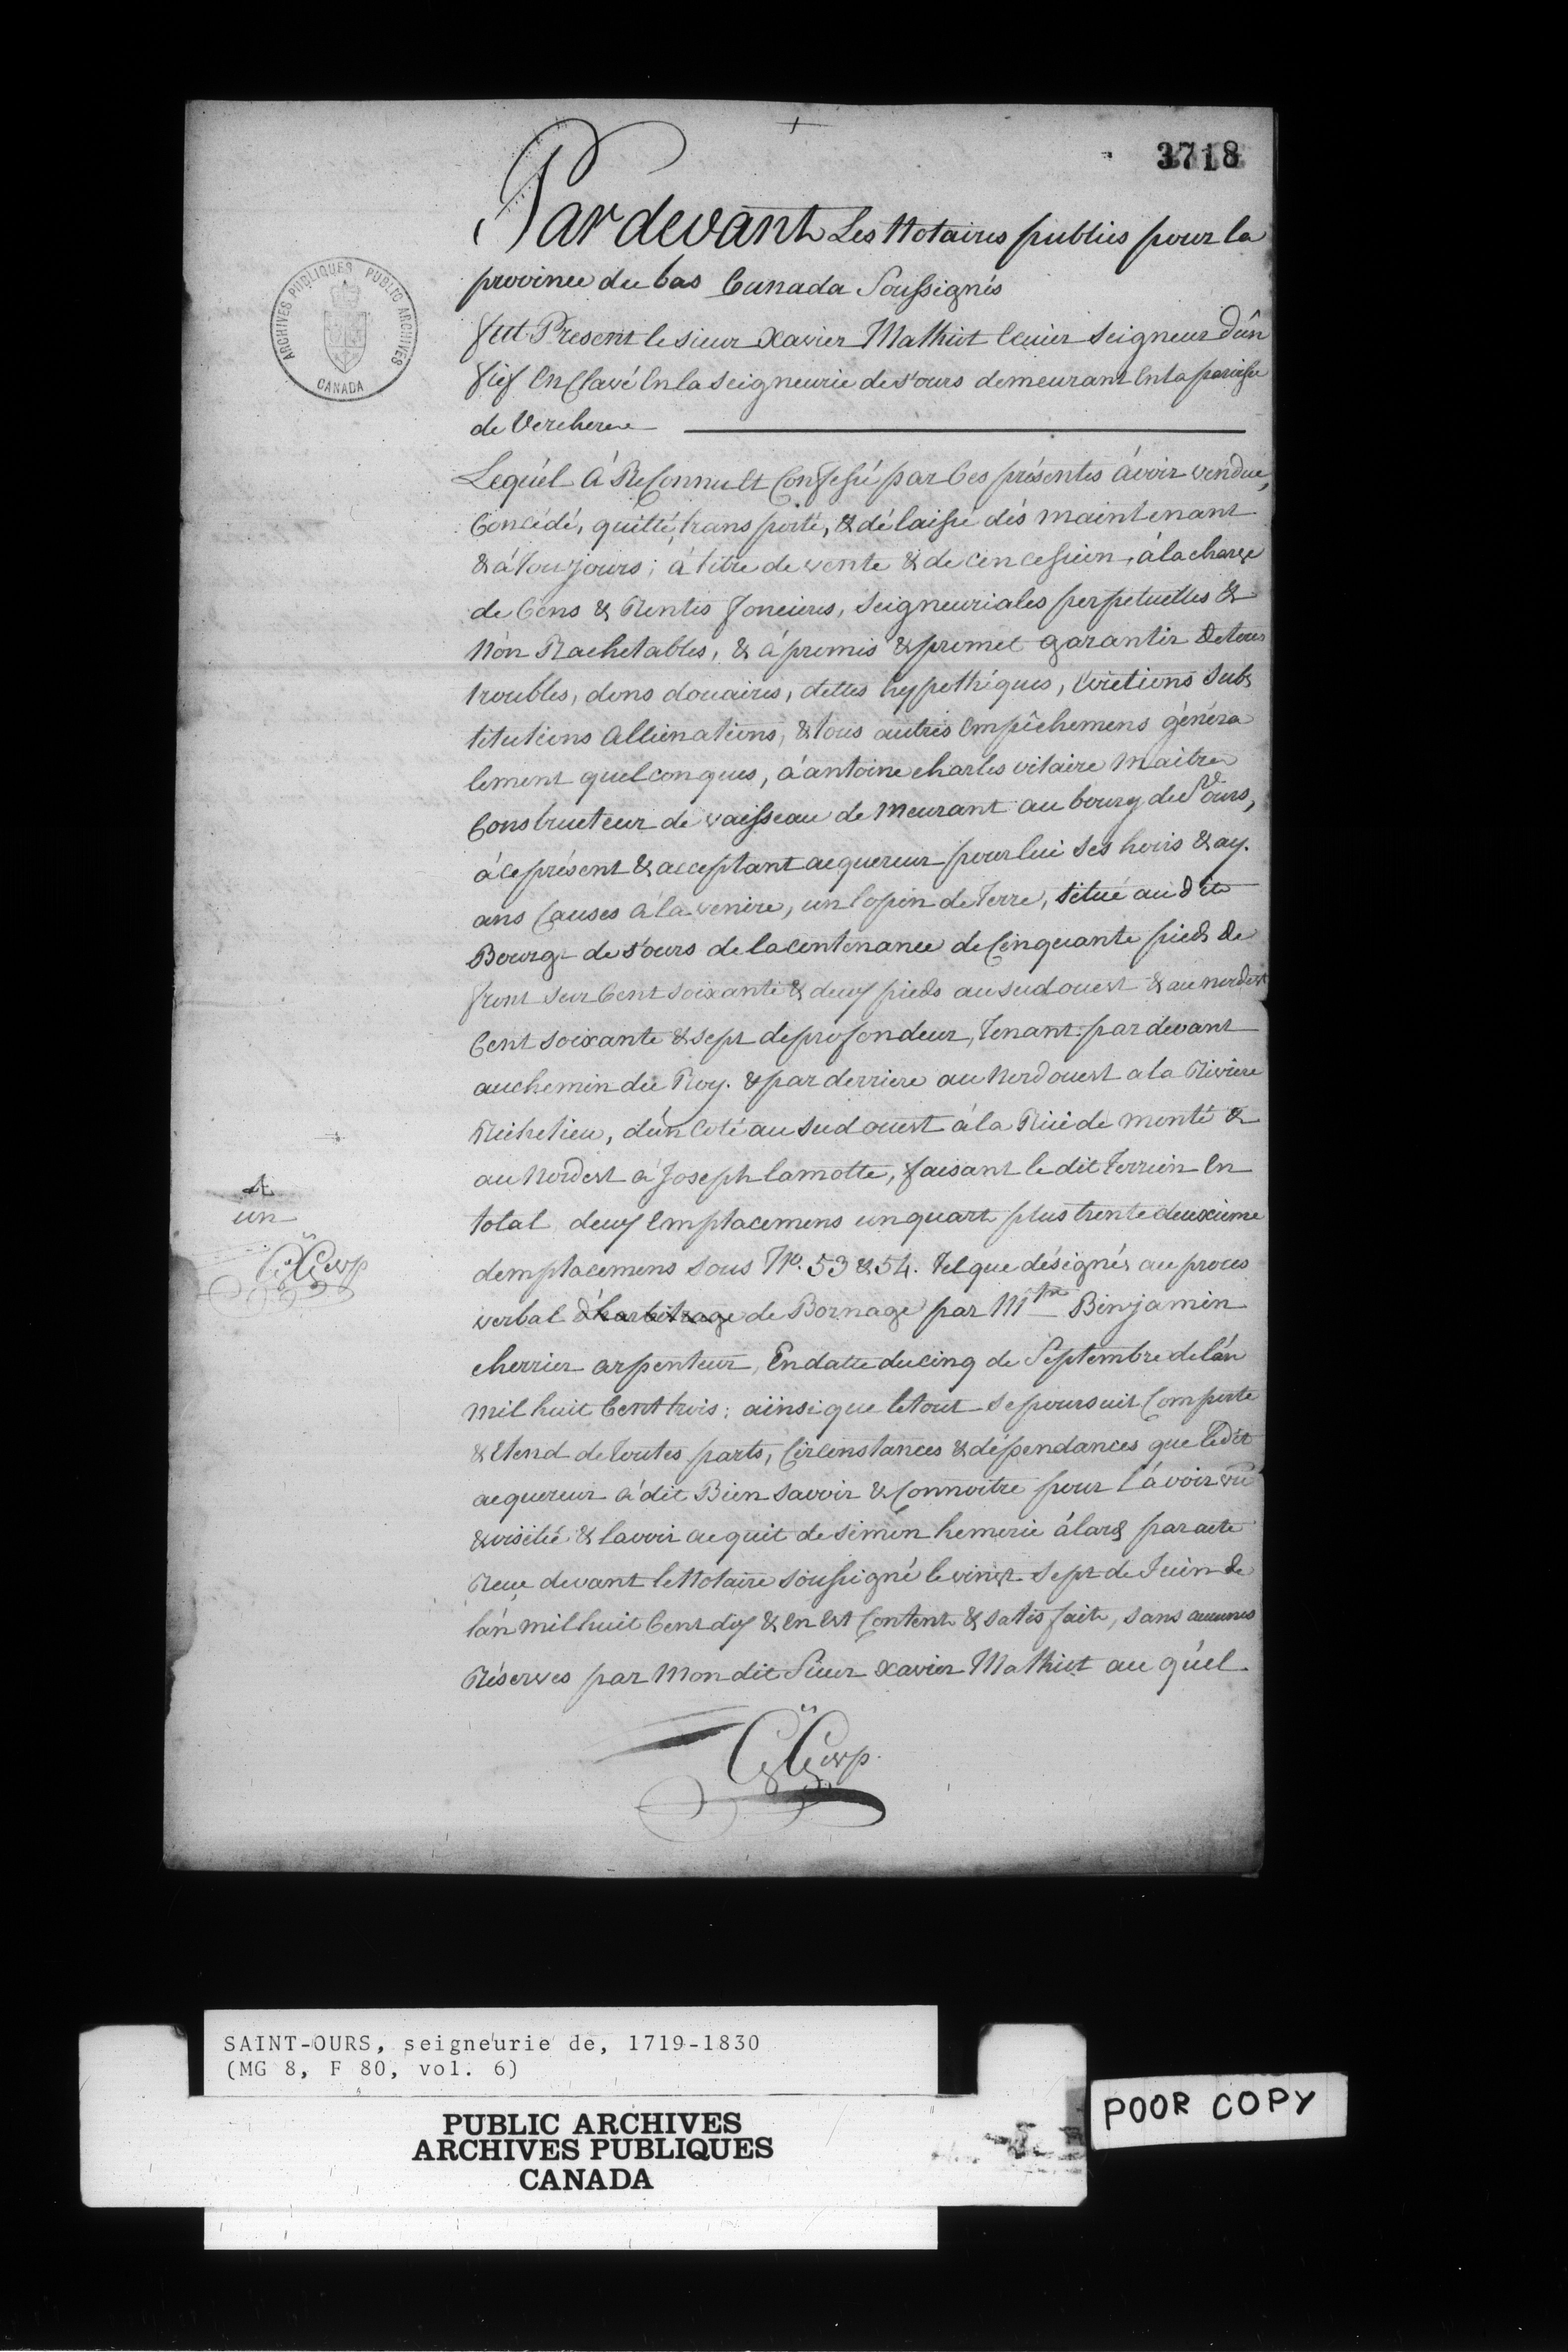 3718
Pardevant Les Notaires publics pour la
province du bas Canada Soussignés
fut Present le sieur Xavier Mathiot Ecuier Seigneur d'ûn
fief EnClavé En la Seigneurie de s^t ours demeurant En la paroisse
de Vercherre
Lequ'el à ReConnu Et Confessé par Ces présentes avoir vendue,
Concédé, quitté, trans porté, & délaissé dés maintenant
& à toujours; à titre de vente & de concession, à la charge
de Cens & Rentes foncieres, Seigneuriales perpetuelles &
Nón Rachetables, & à promis & promet garantir de tous
troubles, dons douaires, dettes hypothéques, Evictions Subs
titutions Allienations, & tous autres Empêchemens généra
lement quelconques, à antoine charles vilaire Maitre
Constructeur de vaisseau de Meurant au bourg de S^t Ours,
à ce présent & acceptant acquereur pour lui Ses hoirs & ay.
ans Causes à la venire, un lopin de Terre, Situé au dite
Bourg de s^t ours de la contenance de Cinquante pieds de
front sur Cent soixante & deux pieds au sud ouest & au nord est
Cent soixante & sept de profondeur, Tenant par devant
au chemin du Roy. & par derriere au Nord ouest a la Riviere
Richelieu, d'ún Coté au Sud ouest à la Rüe de monté &
au Nord est à Joseph lamotte, faisant le dit Terrein En
total deux Emplacemens un quart plus trente deuxieme
demplacemens sous N°. 53 & 54. Tel que désignés au proces
verbal d'harbitrage de Bornage par M^tre Binjamin
cherrier arpenteur, En datte du cinq de Septembre de lán
mil huit Cent trois; aïnsi que le tout se poursuit Comporte
& Etend de toutes parts, Circonstances & dépendances que le dit
acquereur à dit Bien savoir & Connoitre pour l'avoir vû
& visité & lavoir acquit de simon hemerie àlard par acte
Reçu devant le Notaire soussigné le vingt Sept de Juin de
lán mil huit Cent dix & En Est Content & satis fait, sans aucunes
Réserves par Mondit Sieur Xavier Mathiot au qu'el
un
ARCHIVES PUBLIQUES PUBLIC ARCHIVES
CANADA
SAINT-OURS, seigneurie de, 1719-1830
(MG 8, F 80, vol. 6)
PUBLIC ARCHIVES
ARCHIVES PUBLIQUES
CANADA
POOR COPY